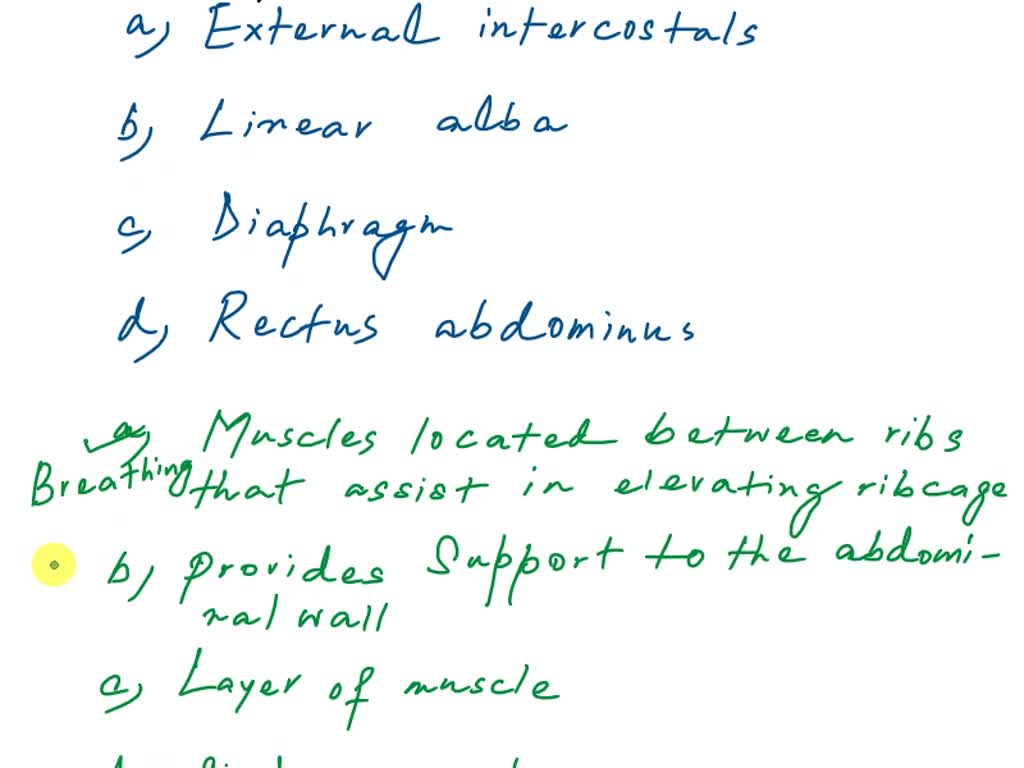 a, External intercostals
b, Linear alba
c, Diaphragm
d, Rectus abdominus
a, Muscles located between ribs
Breathing that assist in elevating ribcage
b, provides Support to the abdomi-
nal wall
c, Layer of muscle